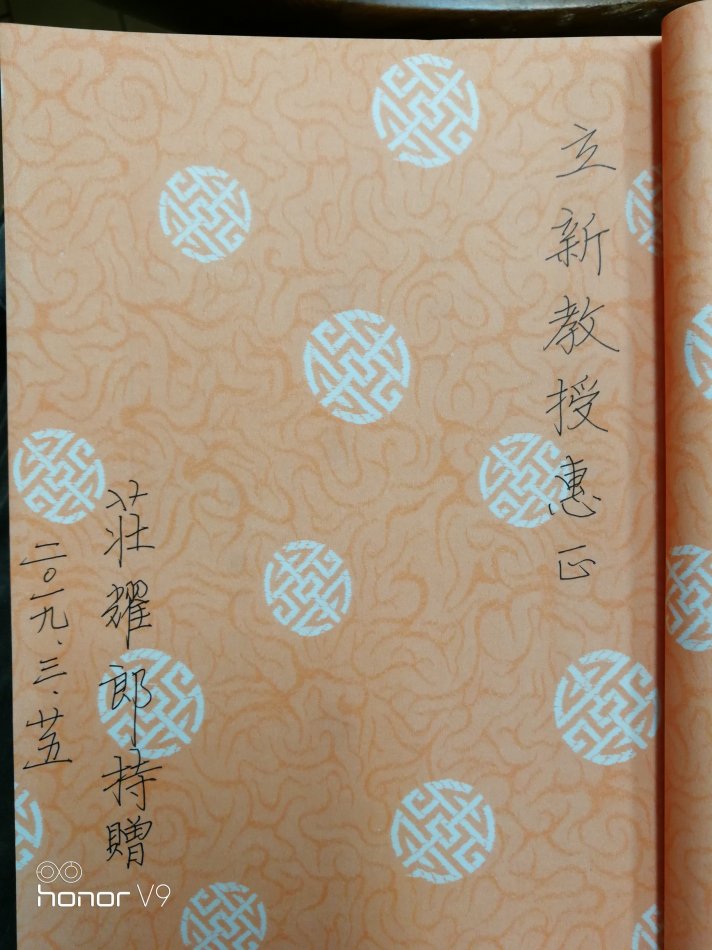 立新教授惠正
莊耀郎持贈
二〇一九.三.廿五
honor V9